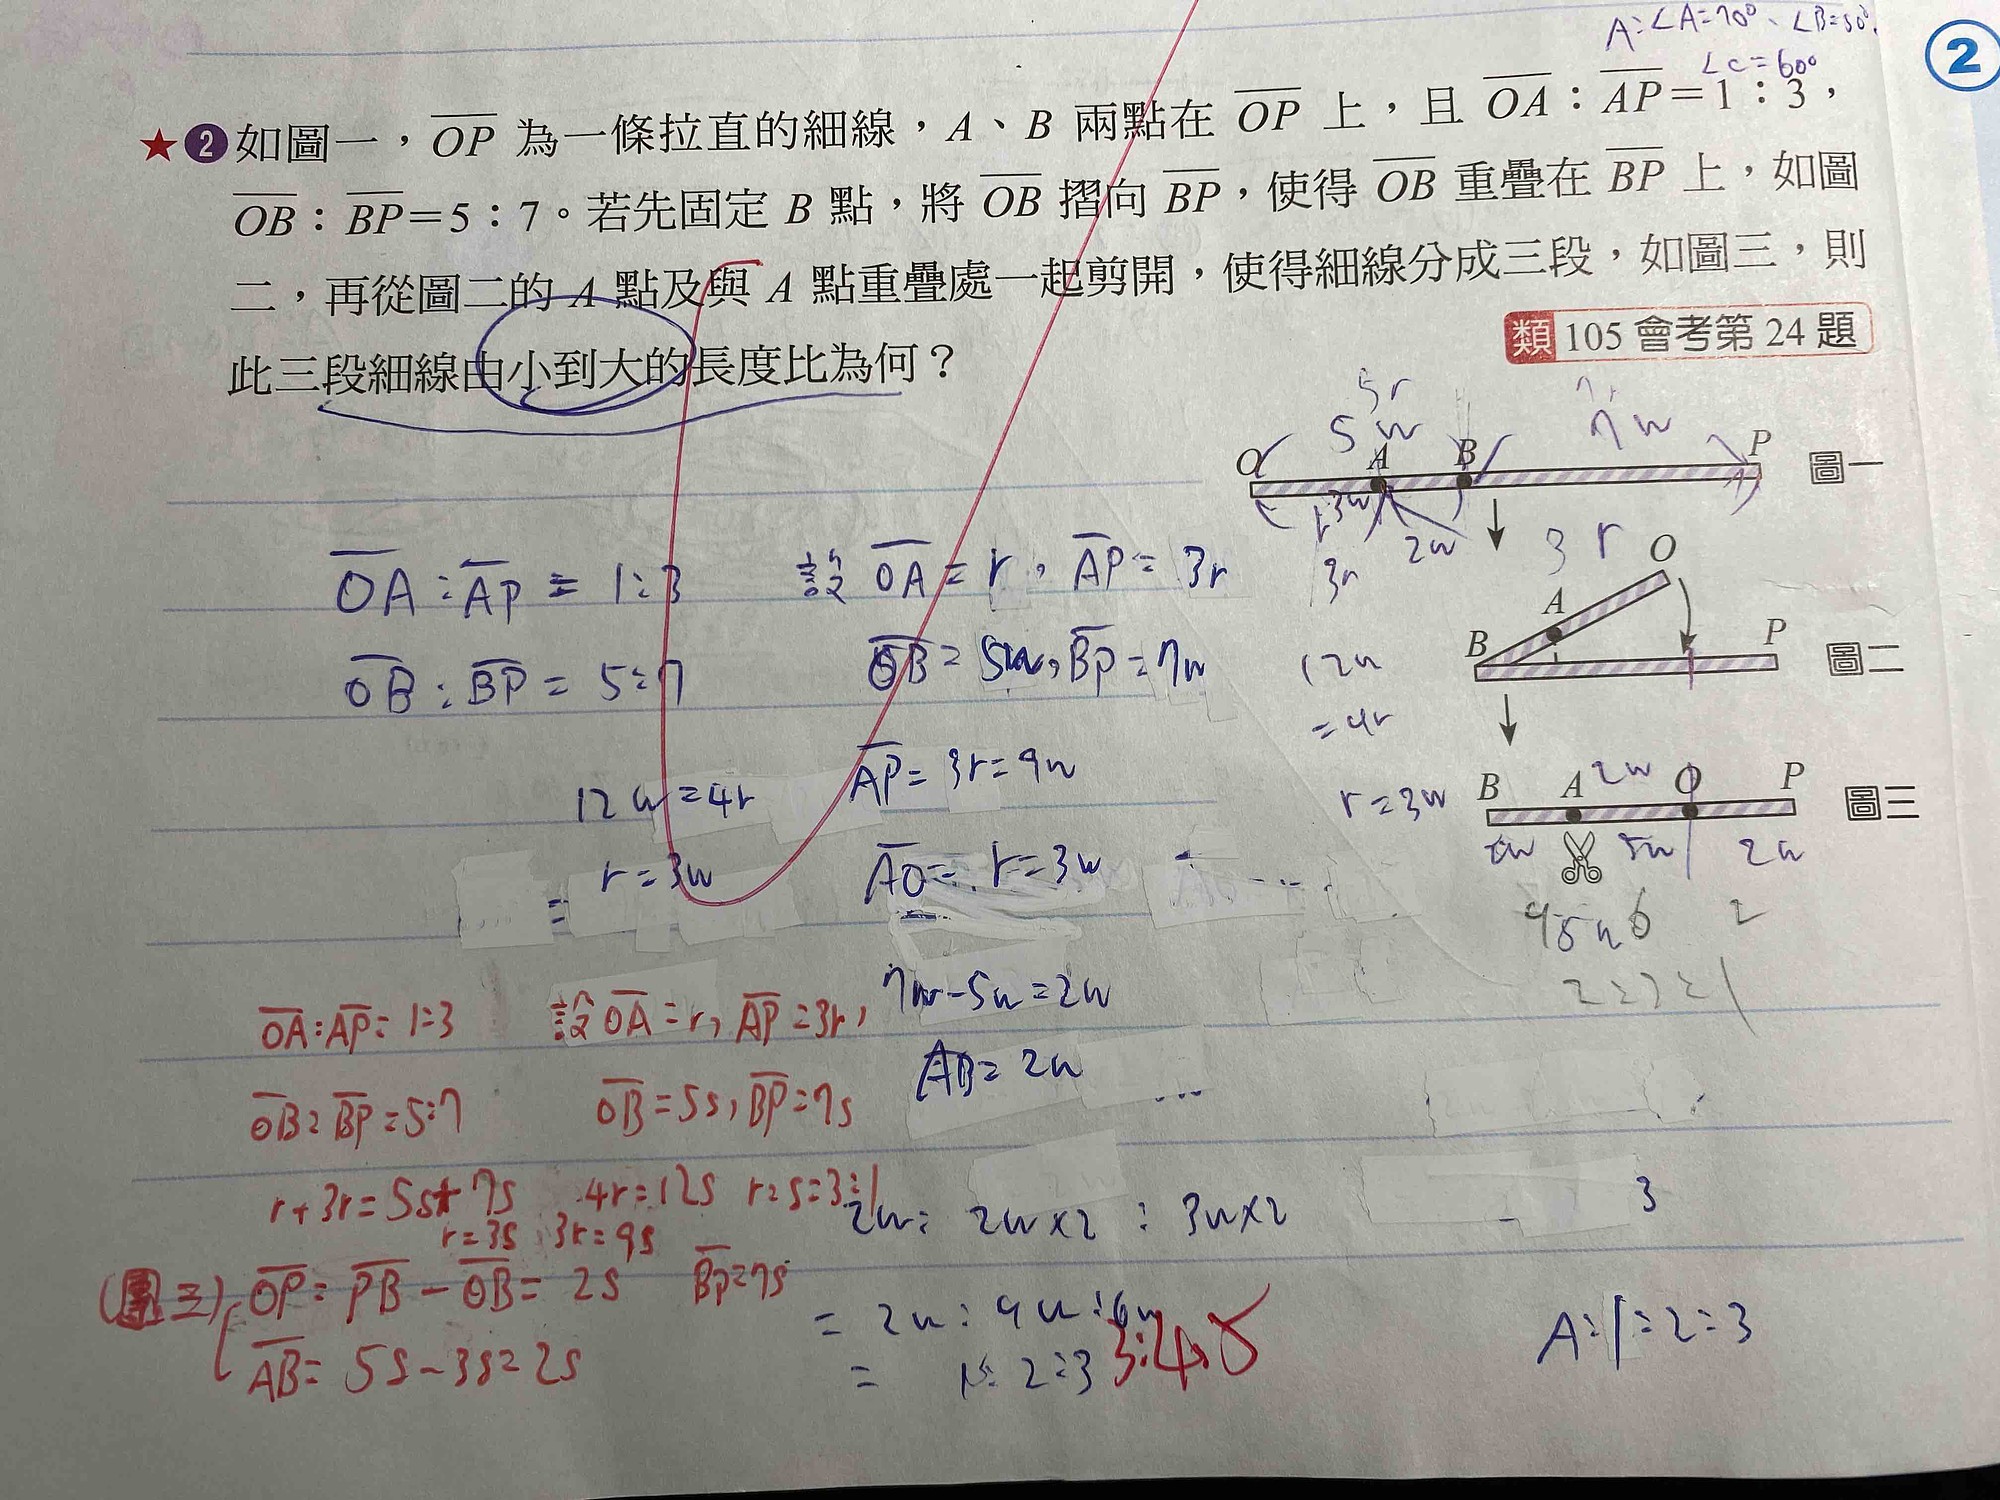 A:∠A=70°、∠B=50°.
∠C=60°
2
★❷如圖一，OP 為一條拉直的細線，A、B 兩點在 OP 上，且 OA：AP＝1：3，
OB：BP＝5：7。若先固定 B 點，將 OB 摺向 BP，使得 OB 重疊在 BP 上，如圖
二，再從圖二的 A 點及與 A 點重疊處一起剪開，使得細線分成三段，如圖三，則
此三段細線由小到大的長度比為何？
類 105 會考第 24 題
5r
5w 7w
O A B P 圖一
3w
2w
3r
3r
O
A
B P 圖二
12w
=4r
r=3w
B A 2w O P 圖三
5w 2w
6 2
OA:AP=1:3 設 OA=r，AP=3r
OB:BP=5:7 OB=5w,BP=7w
12w=4r AP=3r=9w
r=3w AO=r=3w
=
7w-5w=2w
AB=2w
2w: 2w×2 : 3w×2
=2w:4w:6w
= 1:2:3
3
A:1:2:3
OA:AP=1:3 設OA=r,AP=3r,
OB:BP=5:7 OB=5s,BP=7s
r+3r=5s+7s 4r=12s r:s=3:1
r=3s 3r=9s
(圖三) OP=PB-OB=2s BP=7s
AB=5s-3s=2s